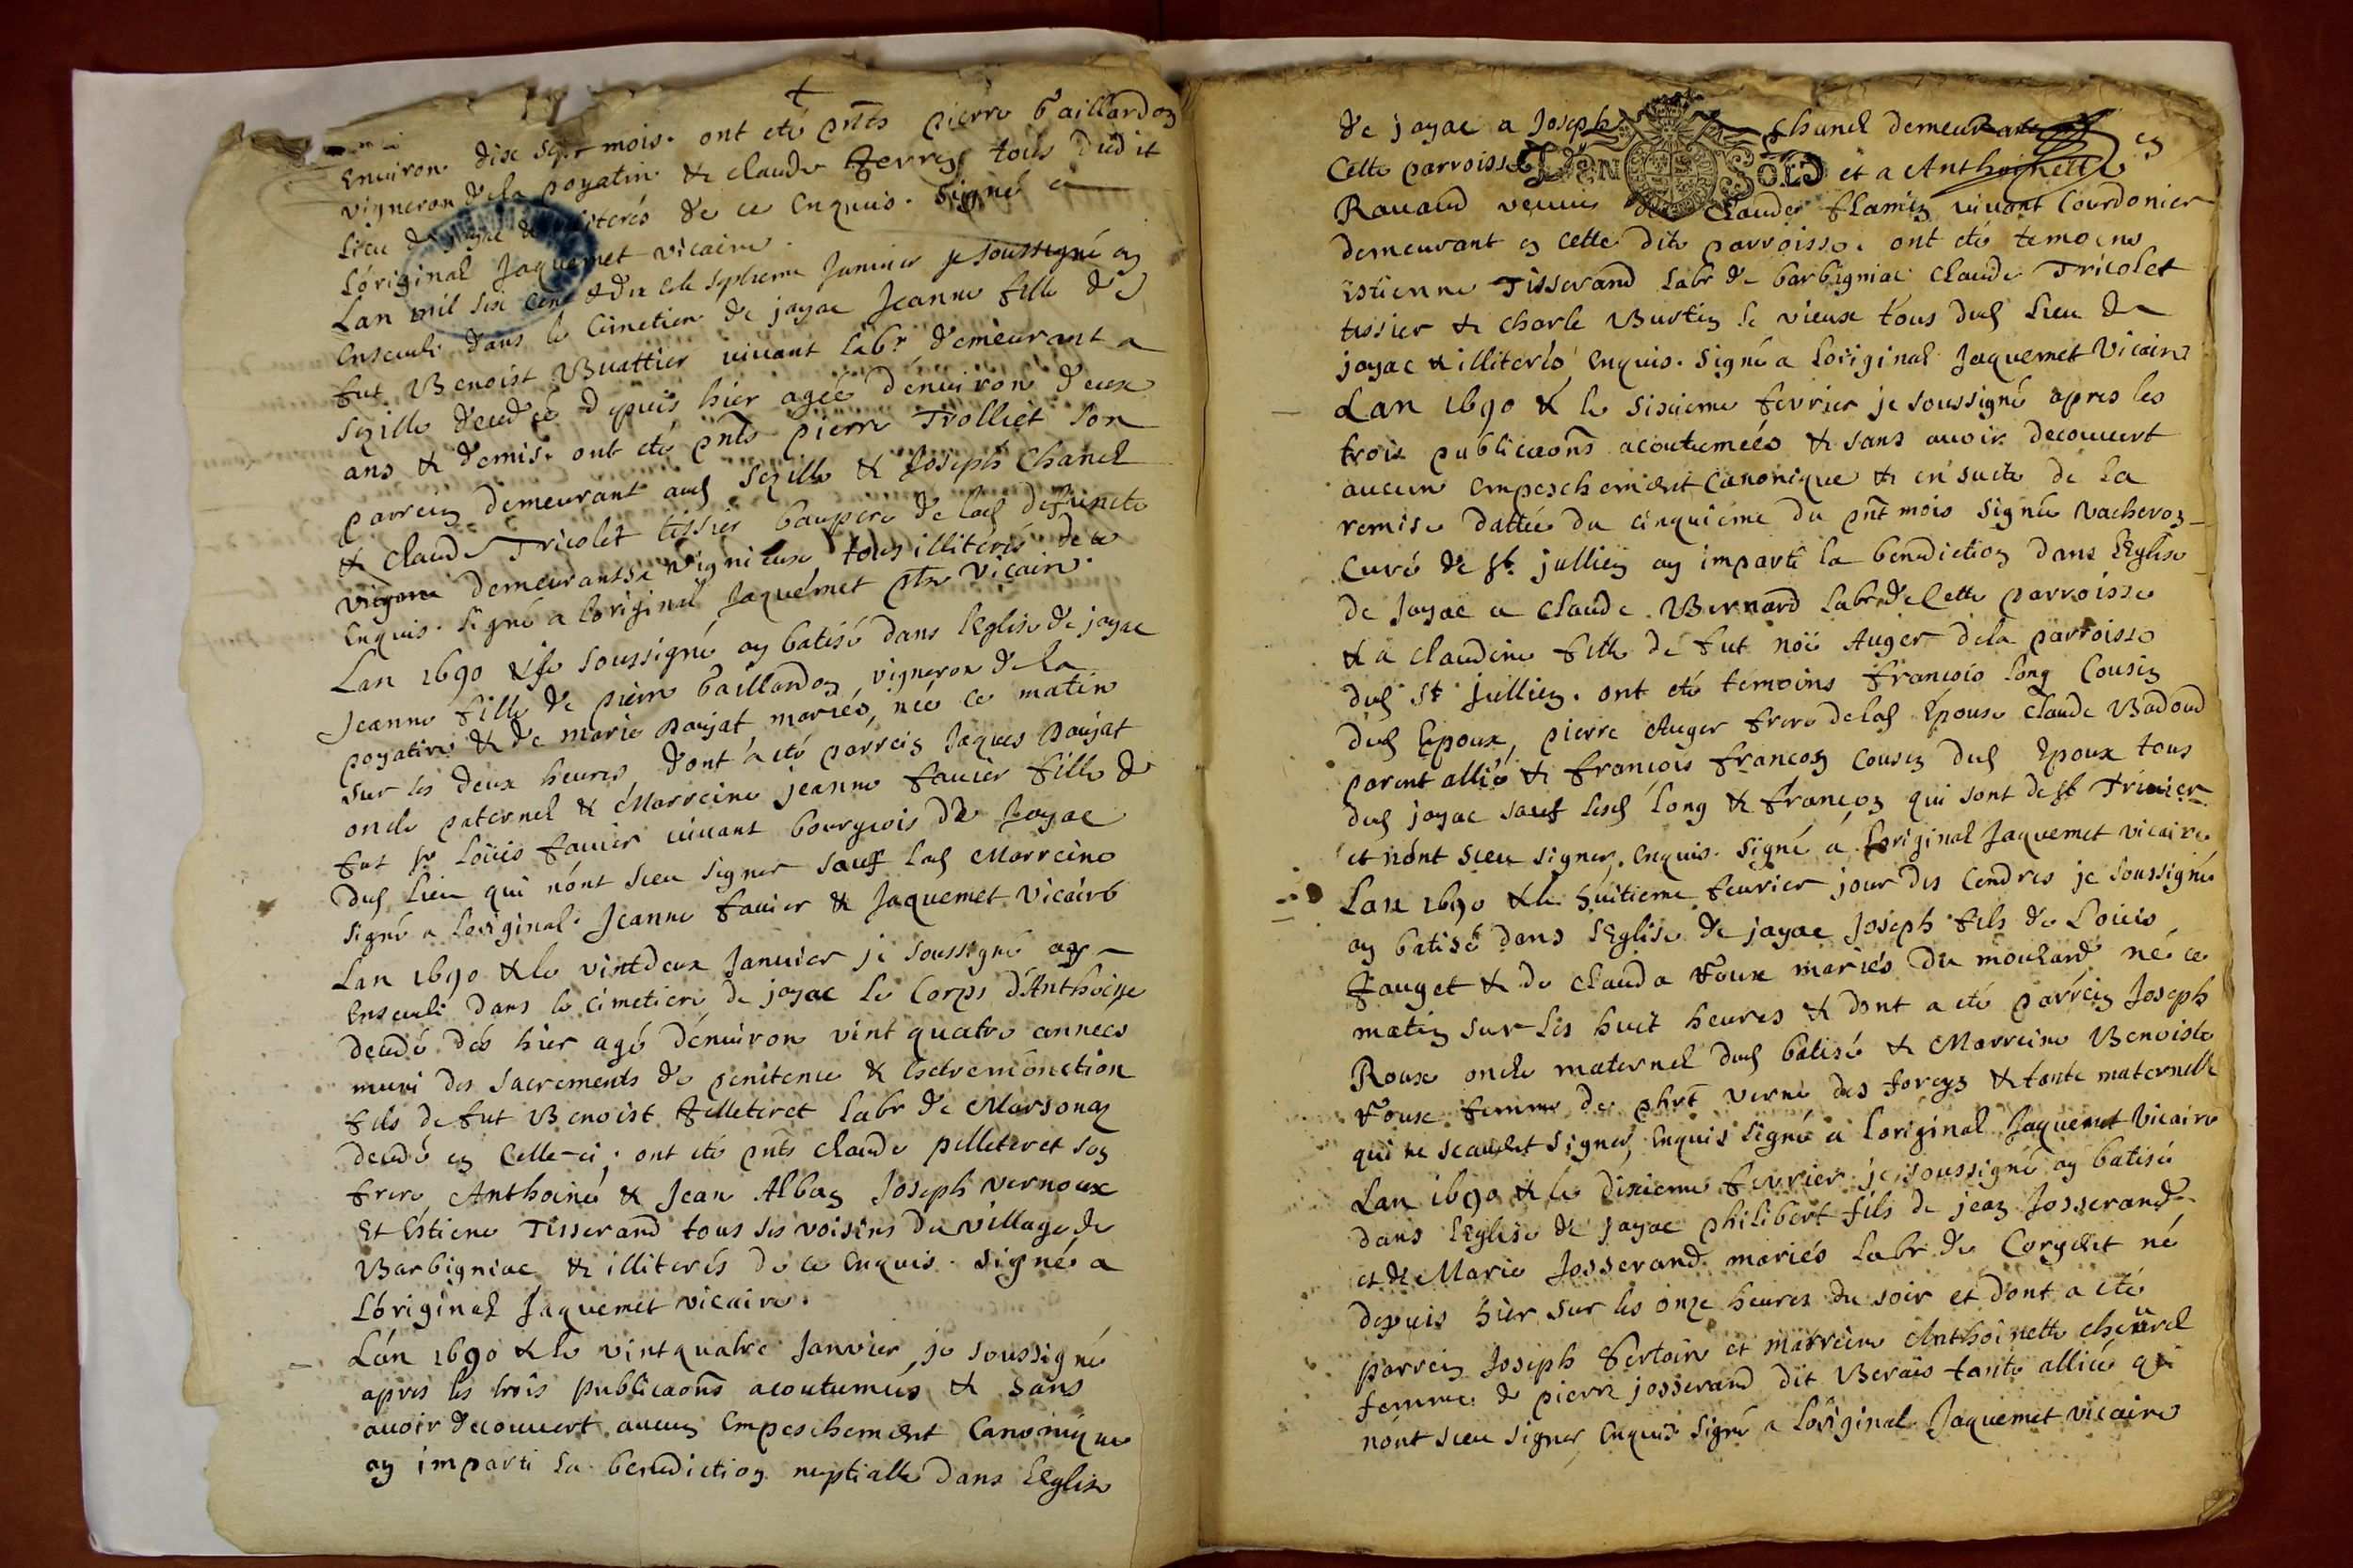 Environ dise sept mois. ont eté pnts pierre Baillardon
vigneron de la poyatin & claude Ferren tous dudit
Lieu de & illiterés de ce Enquis. Signé a
Lóriginal Jaquemet vicaire.
Lan mil six cent & dix & le septieme Janvier je soussigné ay
Enseveli dans le Cimetiere de jayac Jeanne fille de
fut Benoist Buattier vivant labr demeurant a
decedeé depuis hier agée dénviron deux
ans & demis. ont eté pnts pierre Trolliet son
parrein demeurant aud & Joseph Chanel
& claude Tricolet tissier beaupere de lad defuncte
demeurants a vignieux tous illiterés de ce
Enquis. signé a loriginal Jaquémet ptre vicaire.
Lan 1690 & je soussigné ay batisé dans lEglise de jayac
Jeanne fille de pierre Baillardon vigneron de la
poyatine & de marie poujat mariés, neé ce matin
sur les deux heures, dont a eté parrein Jaques poujat
oncle paternel & Marreine jeanne favier fille de
fut sr Loüis favier vivant bourgeois de Jayac
dud Lieu qui nónt sceu signer sauf lad Marreine
signé a loriginal. Jeanne favier & Jaquemet vicaire
Lan 1690 & le vintdeux Janvier je soussigné ay
Enseveli dans le cimetiere de jayac le Corps dAnthoine
decedé dés hier agé dénviron vint quatre anneés
muni des Sacrements de penitence & lextremónction
fils de fut Benoist Pelleteret labr de Marsonay
decedé en Celle-ci; ont eté pnts claude pelleteret son
frere, Anthoine & Jean Alban Joseph vernoux
Et Estiene Tisserand tous ses voisins du village de
Barbigniac & illiterés de ce Enquis. Signé a
Lóriginal Jaquemet vicaire.
Lán 1690 & le vintquatre Janvier, je soussigné
apres les trois publicaons acoutumeés & sans
avoir decouvert aucun Empeschement Canonique
ay imparti la benediction nuptialle dans lEglise
de jayac a Joseph Chanel demeurant en
Cette parroisse et a Anthoinette
DEN SOLD
Ravaud veuve de Claude flamin vivant Courdonier
demeurant en cette dite parroisse. ont eté temoens
Estienne Tisserand labr de barbigniac Claude Tricolet
tissier & charle Burtin le vieux tous dud lieu de
jayac & illiterés Enquis. Signé a loriginal Jaquemet Vicaire
Lan 1690 & le sisieme fevrier je soussigné apres les
trois publicaons acoutumeés & sans avoir decouvert
aucun empeschement Canonique & en suite de la
remise datteé du cinquiéme du pnt mois signeé vacheron
Curé de st jullien ay imparti la benediction dans lEglise
de Jayac a claude Bernard labr de Cette parroisse
& a claudine fille de fut noë Auger de la parroisse
dud st jullien. ont eté temoins françois long Cousin
dud Epoux, pierre Auger frere de lad Épouse claude Badoud
parent allié & françois françon cousin dud Epoux tous
dud jayac sauf lesd long & françon qui sont de st Trivier
et nónt sceu signer, Enquis. Signé a loriginal Jaquemet vicaire
Lan 1690 & le huitieme fevrier jour des Cendres je soussigné
ay batisé dans lEglise de jayac Joseph fils de Loüis
Fauget & de clauda roux mariés du moulard né ce
matin sur les huit heures & dont a eté parrein Joseph
Roux oncle maternel dud batisé & Marreine Benoiste
roux femme de phrt verne des foreys & tante maternelle
qui ne sçauent signer, Enquis signé a loriginal Jaquemet Vicaire
Lan 1690 & le dixieme fevrier je soussigné ay batisé
dans lEglise de jayac philibert fils de jean Josserand
et de Marie Josserand mariés labr de Corgent né
depuis hier sur les onze heures du soir et dont a eté
parrein Joseph et marreine Anthoinette
femme de pierre josserand dit Berais tante allieé qui
nónt sceu signer Enquis signé a loriginal Jaquemet vicaire